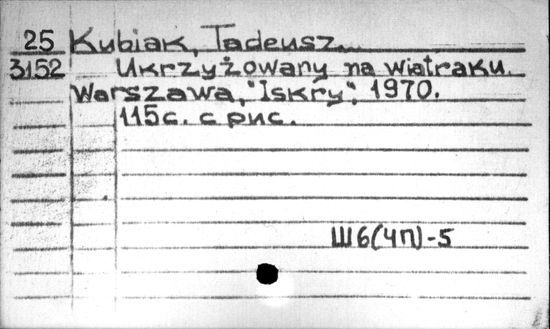 25 Kubiak, Tadeusz...
3152 Ukrzyżowany na wiatraku.
Warszawa, "Iskry", 1970.
115с. с рис.
Ш6(4П)-5